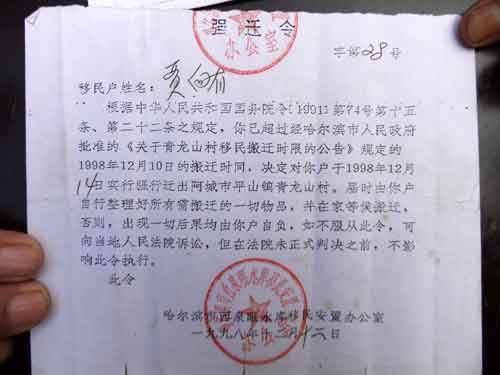 强迁令
办公室
字第28号
移民户姓名：贾
根据中华人民共和国国务院令[1991]第74号第十五
条、第二十二条之规定，你已超过经哈尔滨市人民政府
批准的《关于青龙山村移民搬迁时限的公告》规定的
1998年12月10日的搬迁时间，决定对你户于1998年12月
14日实行强行迁出阿城市平山镇青龙山村。届时由你户
自行整理好所有需搬迁的一切物品，并在家等侯搬迁，
否则，出现一切后果均由你户自负，如不服从此令，可
向当地人民法院诉讼，但在法院未正式判决之前，不影
响此令执行。
此令
哈尔滨市西泉眼水库移民安置办公室
一九九八年十二月十二日